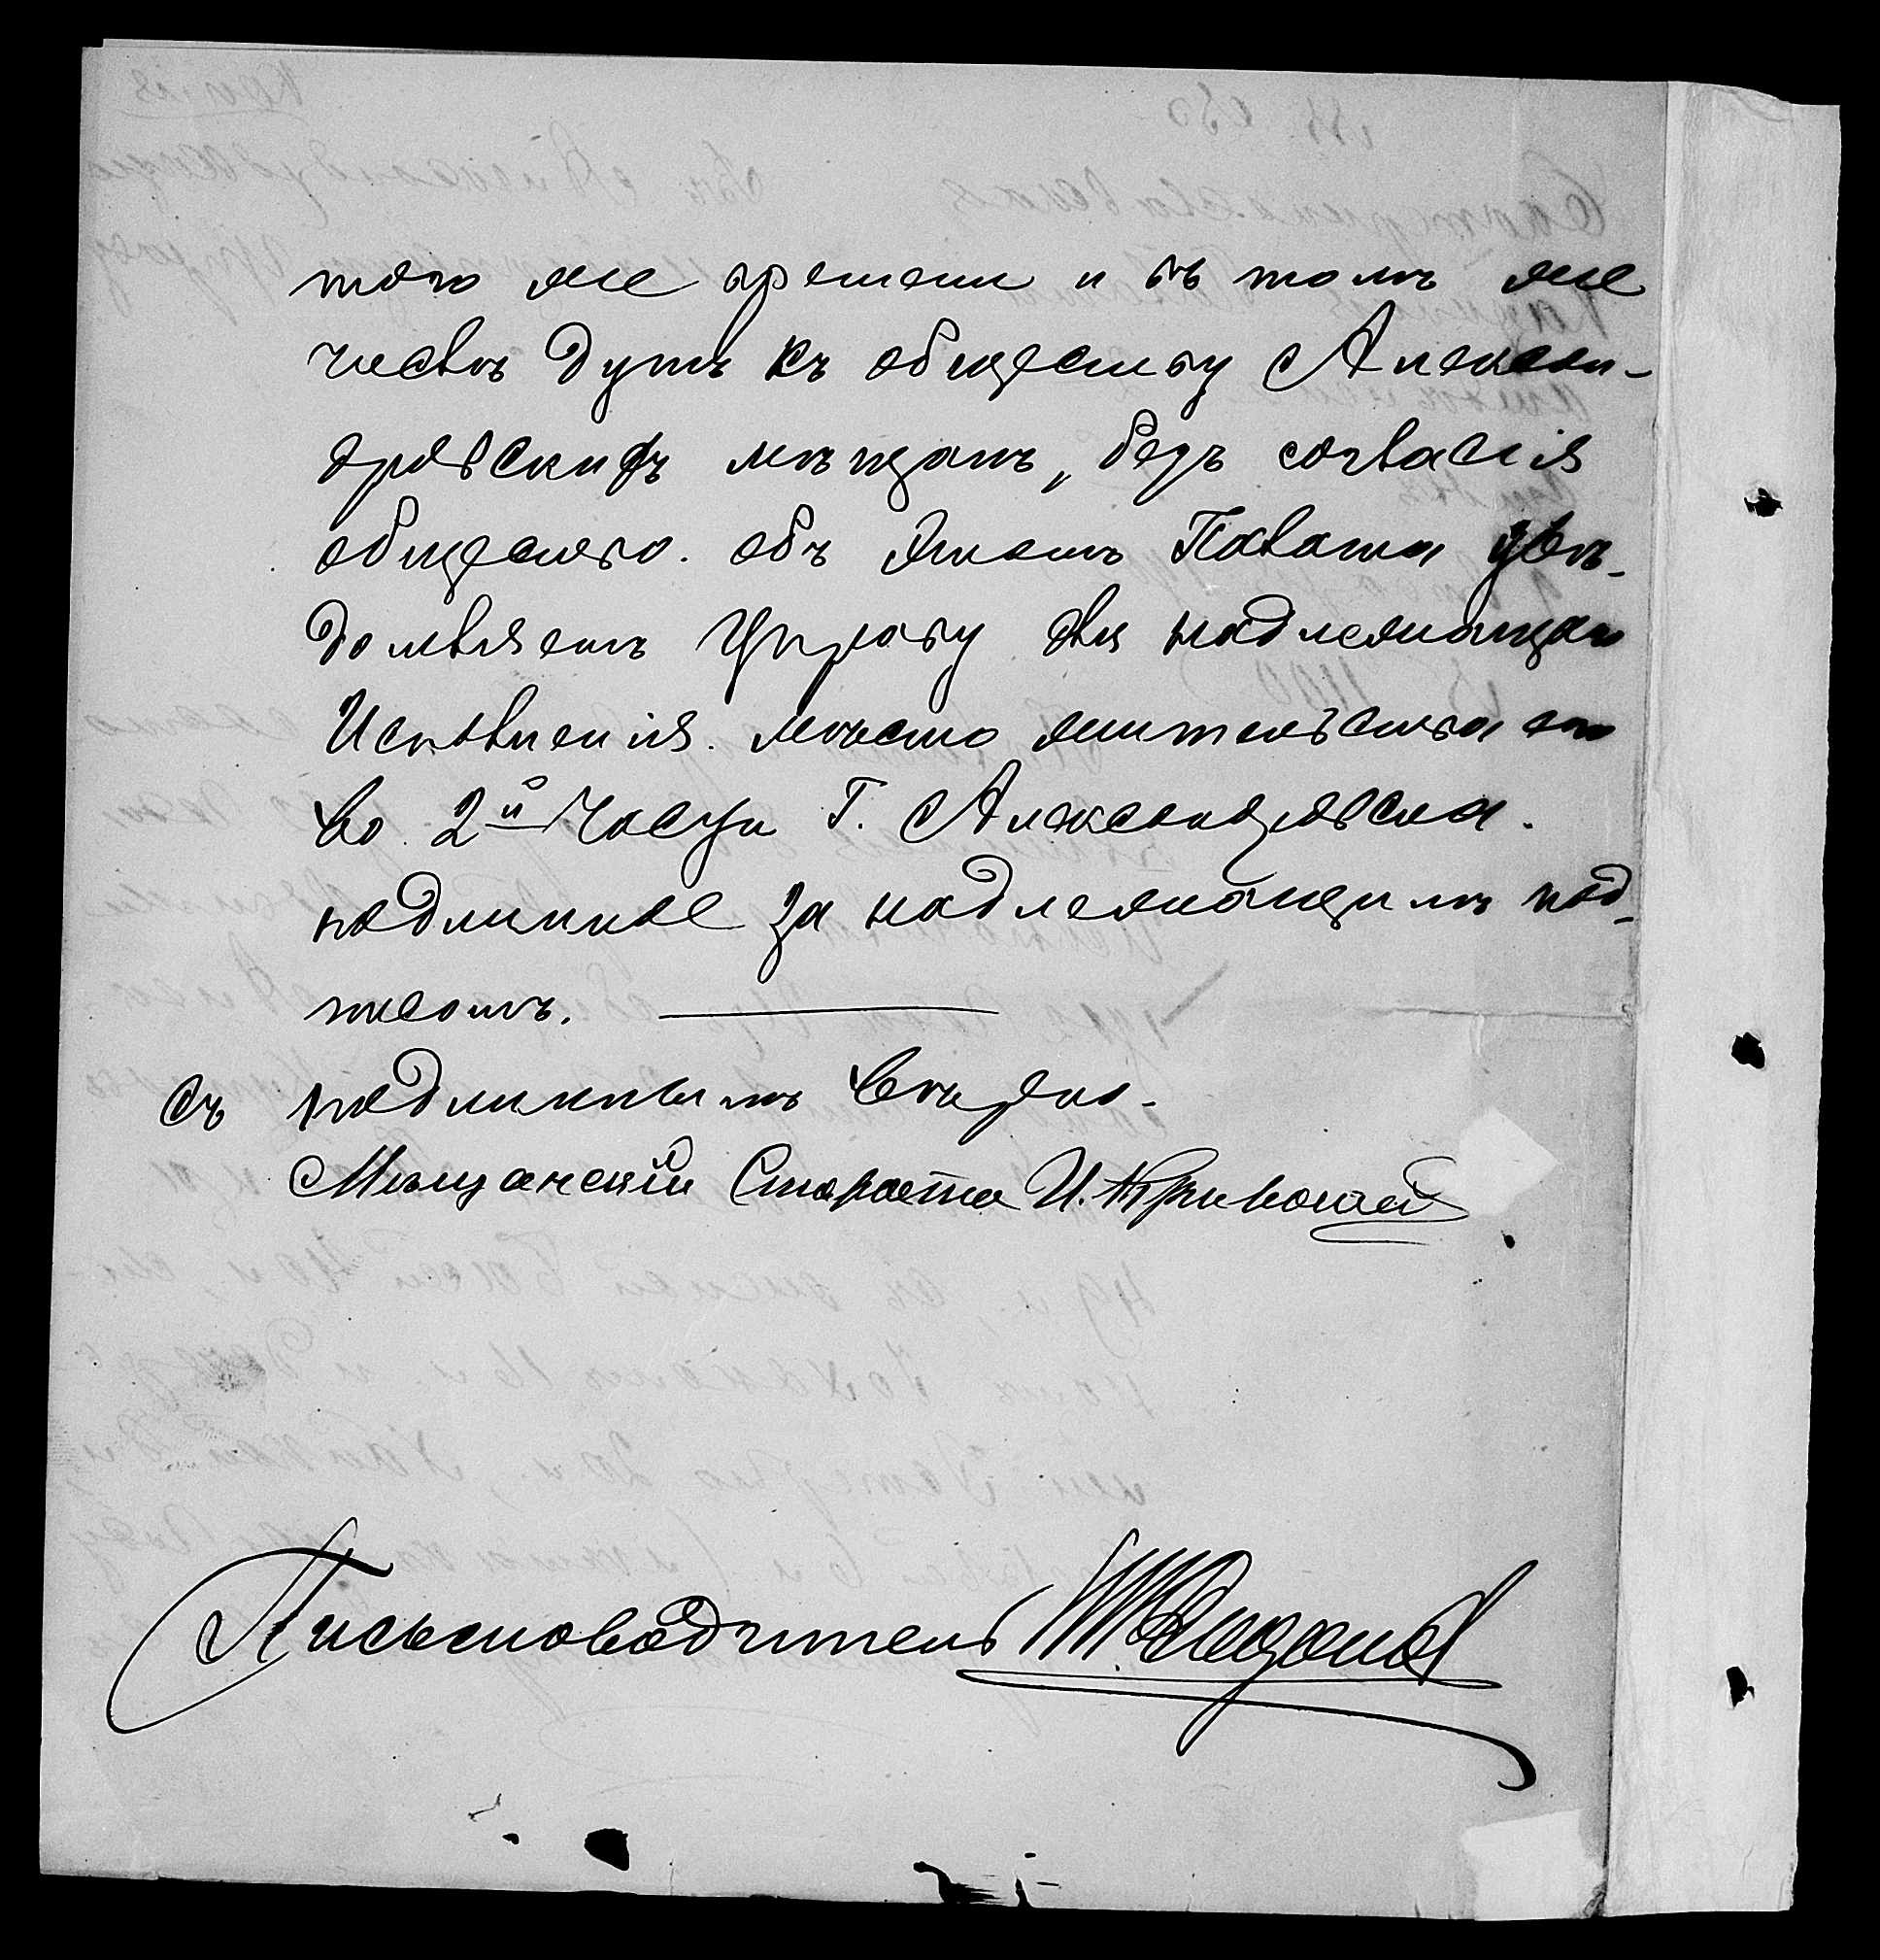 того же времени и въ томъ же
числѣ душъ къ обществу Алексан-
дровскихъ мѣщанъ, безъ согласія
общества. объ этомъ Палата увѣ-
домляетъ Управу для надлежащаго
Исполненія. мѣсто жительства его
во 2й Части Г. Александровска.
подлинное за надлежащимъ под-
писомъ.
съ подлиннымъ вѣрно.
Мѣщанскій Староста И. Кривошей
Письмоводитель